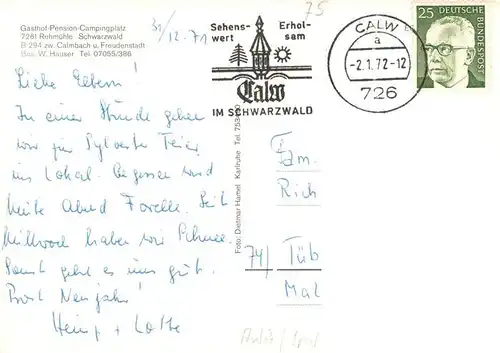 Gasthof-Pension-Campingplatz
7261 Rehmühle Schwarzwald
B 294 zw. Calmbach u. Freudenstadt
Bes. W. Hauser Tel. 07055/386
31/12.71
Liebe Eltern!
In einer Stunde gehen
wir zur Sylvester Feier
ins Lokal. Gegessen wird
heute Abend Forelle. Seit
Mittwoch haben wir Schnee.
Sonst geht es uns gut.
Prost Neujahr!
Heinz + Lotte
25
Sehens- Erhol-
wert sam
Calw
IM SCHWARZWALD
CALW
a
-2.1.72-12
726
25 DEUTSCHE
BUNDESPOST
Foto: Dietmar Hamel Karlsruhe Tel.
Fam.
Rich
74/ Tüb
Mal